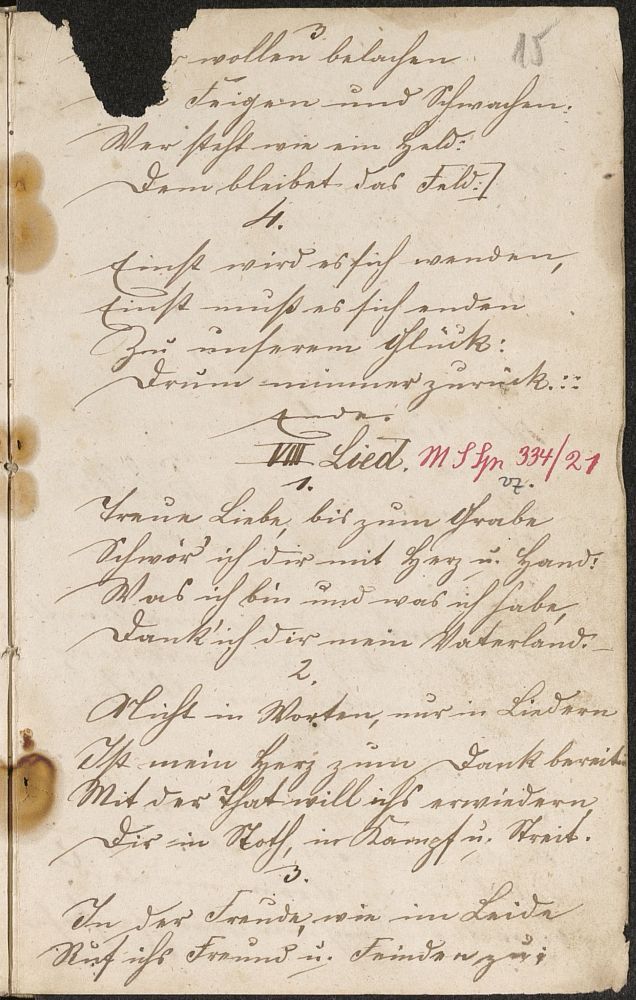 15
3.
wollen belachen
Feigen und Schwachen:
Wer steht wie ein Held:
Dem bleibet das Feld:]
4.
Einst wird es sich wenden,
Einst muß es sich enden
Zu unserem Glück:
Drum nimmer zurück.::
Ende.
VIII Lied. M S Spn 334/21
vz.
1.
Treue Liebe, bis zum Grabe
Schwör' ich dir mit Herz u. Hand:
Was ich bin und was ich habe,
Dank' ich dir mein Vaterland.
2.
Nicht in Worten, nur in Liedern
Ist mein Herz zum Dank bereit
Mit der That will ichs erwiedern,
Dir in Noth, in Kampf u. Streit.
3.
In der Freude, wie im Leide
Ruf ichs Freund u. Feinden zu: